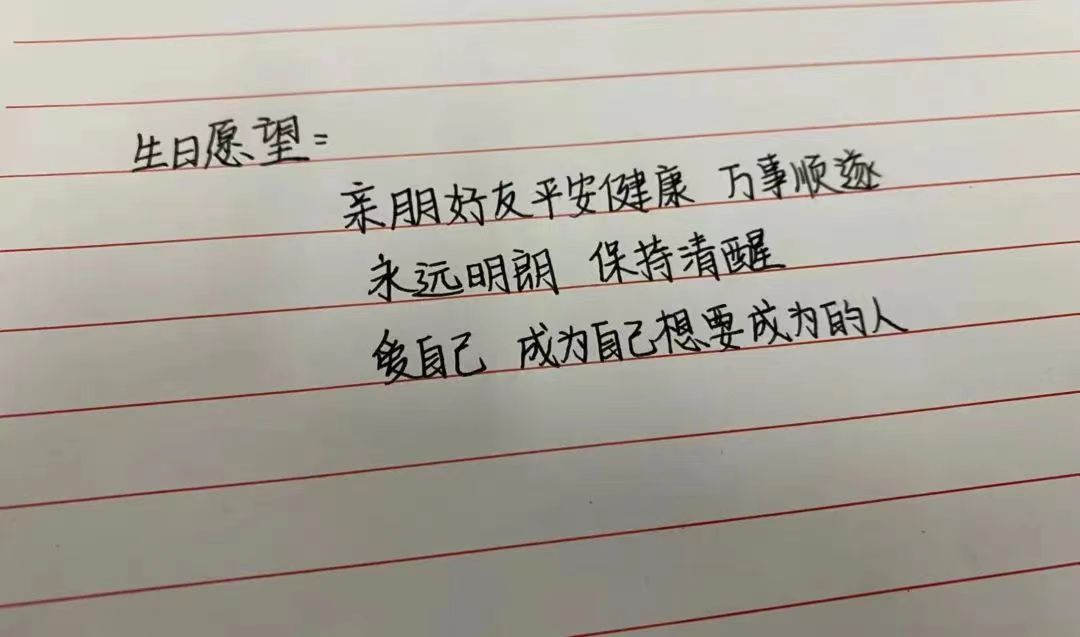 生日愿望:
亲朋好友平安健康 万事顺遂
永远明朗 保持清醒
爱自己 成为自己想要成为的人